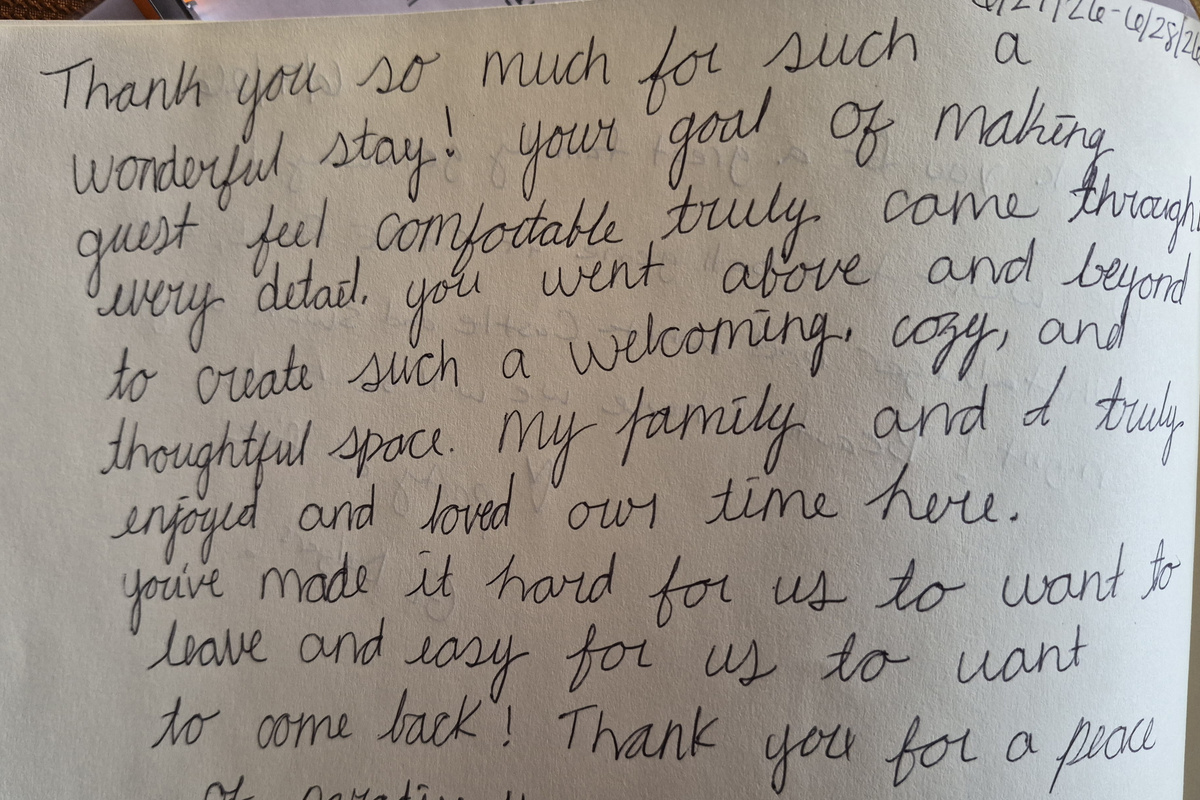 6/27/26-6/28/26
Thank you so much for such a
wonderful stay! your goal of making
guest feel comfortable truly came through
every detail. you went above and beyond
to create such a welcoming, cozy, and
thoughtful space. My family and I truly
enjoyed and loved our time here.
you've made it hard for us to want to
leave and easy for us to want
to come back! Thank you for a peace
of